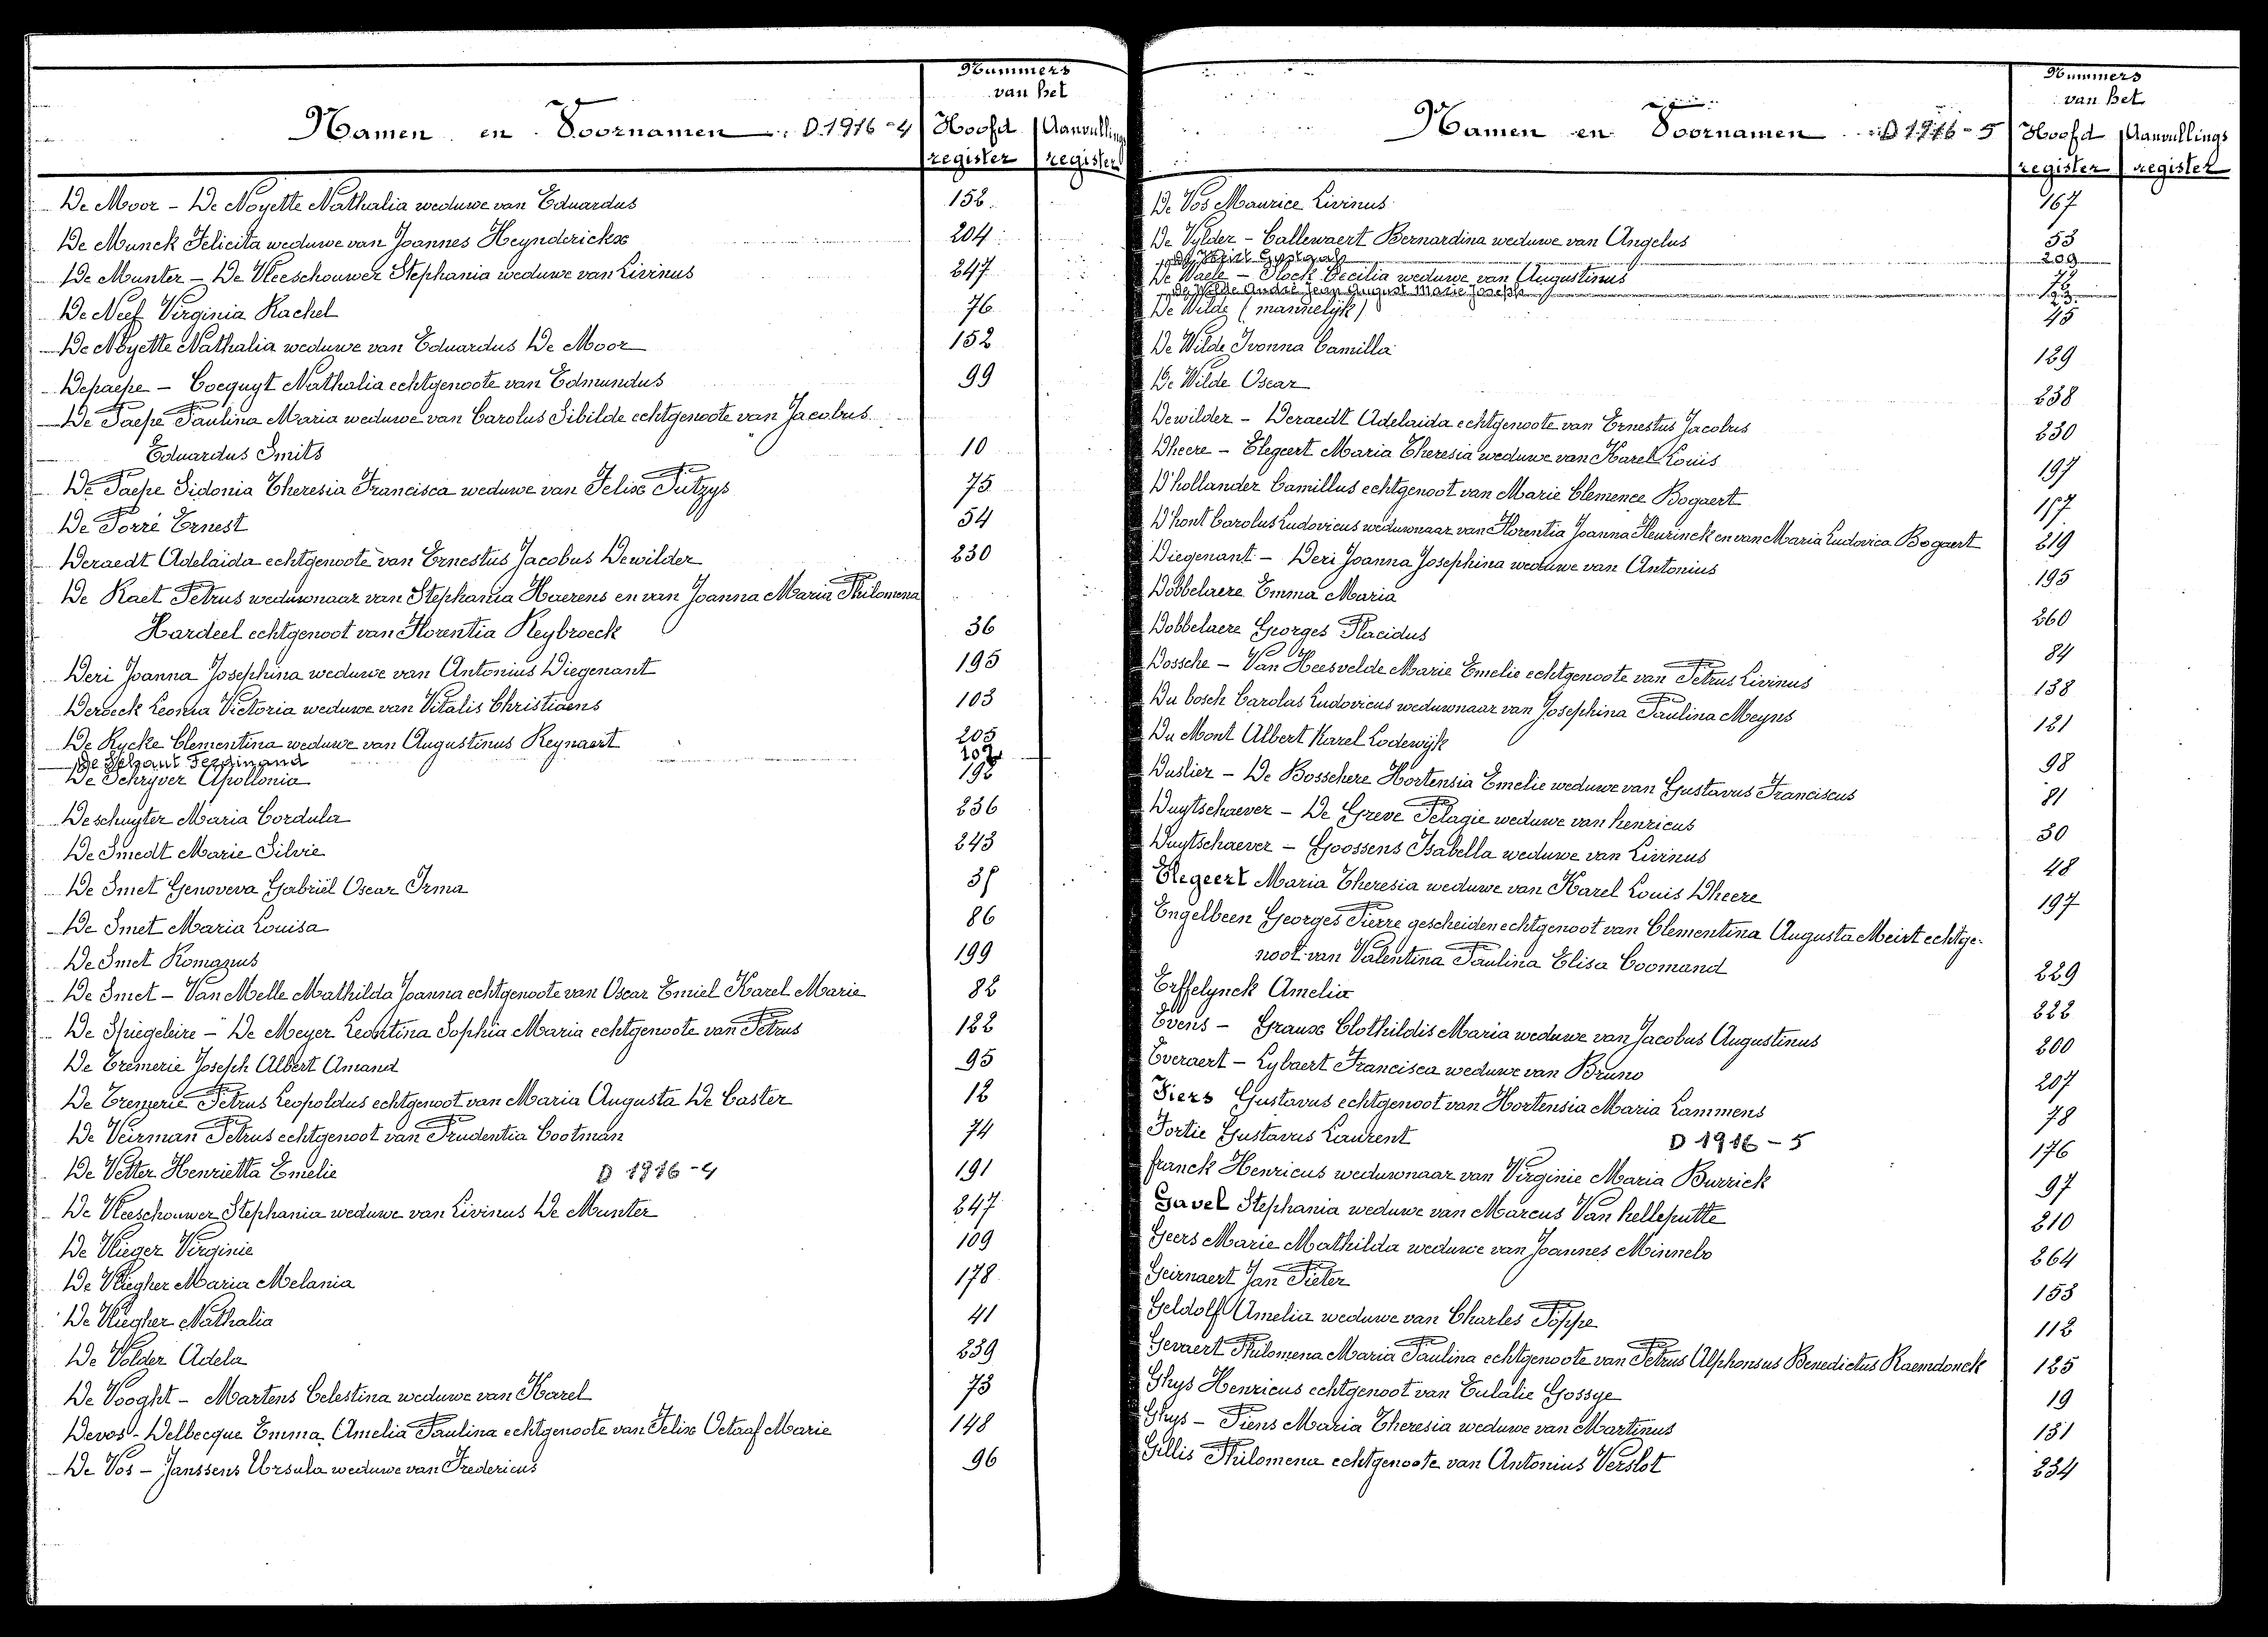 Nummers
van het
Namen en Voornamen D.1916-4 Hoofd Aanvullings
register register
De Moor - De Noyette Nathalia weduwe van Eduardus 152
De Munck Felicita weduwe van Joannes Heynderickx 204
De Munter - De Vleeschouwer Stephania weduwe van Livinus 247
De Neef Virginia Rachel 76
De Noyette Nathalia weduwe van Eduardus De Moor 152
Depaepe - Cocquyt Nathalia echtgenoote van Edmundus 99
De Paepe Paulina Maria weduwe van Carolus Sibilde echtgenoote van Jacobus
Eduardus Smits 10
De Paepe Sidonia Theresia Francisca weduwe van Felix Putzys 75
De Porré Ernest 54
Deraedt Adelaïda echtgenoote van Ernestus Jacobus Dewilder 230
De Raet Petrus weduwnaar van Stephania Haerens en van Joanna Maria Philomena
Hardeel echtgenoot van Florentia Reybroeck 36
Deri Joanna Josephina weduwe van Antonius Diegenant 195
Deroeck Leonia Victoria weduwe van Vitalis Christiaens 103
De Rycke Clementina weduwe van Augustinus Reynaert 205
De Schaut Ferdinand 202
De Schryver Apollonia 192
Deschuyter Maria Cordula 236
De Smedt Marie Silvie 243
De Smet Genoveva Gabriël Oscar Irma
De Smet Maria Louisa 86
De Smet Romanus 199
De Smet - Van Melle Mathilda Joanna echtgenoote van Oscar Emiel Karel Marie 82
De Spiegeleire - De Meyer Leontina Sophia Maria echtgenoote van Petrus 122
De Tremerie Joseph Albert Amand 95
De Tremerie Petrus Leopoldus echtgenoot van Maria Augusta De Caster 12
De Veirman Petrus echtgenoot van Prudentia Cootman 74
De Vetter Henrietta Emelie D 1916-4 191
De Vleeschouwer Stephania weduwe van Livinus De Munter 247
De Vlieger Virginie 109
De Vliegher Maria Melania 178
De Vliegher Nathalia 41
De Volder Adela 239
De Vooght - Martens Celestina weduwe van Karel 73
Devos - Delbecque Emma Amelia Paulina echtgenoote van Felix Octaaf Marie 148
De Vos - Janssens Ursula weduwe van Fredericus 96
Nummers
van het
Namen en Voornamen D 1916-5 Hoofd Aanvullings
register register
De Vos Maurice Livinus 167
De Vylder - Callewaert Bernardina weduwe van Angelus 53
209
De Waele - Block Cecilia weduwe van Augustinus
De Wilde André Jean August Marie Joseph
De Wilde (mannelijk) 45
De Wilde Ivonna Camilla 129
De Wilde Oscar 238
Dewilder - Deraedt Adelaida echtgenoote van Ernestus Jacobus 230
Dheere - Elegeert Maria Theresia weduwe van Karel Louis 197
D'hollander Camillus echtgenoot van Marie Clemence Bogaert
D'hont Carolus Ludovicus weduwnaar van Florentia Joanna Heurinck en van Maria Ludovica Bogaert 219
Diegenant - Deri Joanna Josephina weduwe van Antonius 195
Dobbelaere Emma Maria 260
Dobbelaere Georges Placidus 84
Dossche - Van Heesvelde Marie Emelie echtgenoote van Petrus Livinus 138
Du bosch Carolus Ludovicus weduwnaar van Josephina Paulina Meyns 121
Du Mont Albert Karel Lodewijk 98
Duslier - De Bosschere Hortensia Emelie weduwe van Gustavus Franciscus 81
Duytschaever - De Greve Pelagie weduwe van henricus 30
Duytschaever - Goossens Isabella weduwe van Livinus 48
Elegeert Maria Theresia weduwe van Karel Louis Dheere 197
Engelbeen Georges Pierre gescheiden echtgenoot van Clementina Augusta Meirt echtge-
noot van Valentina Paulina Elisa Coomand 229
Erffelynck Amelia 222
Evens - Graux Clothildis Maria weduwe van Jacobus Augustinus 200
Everaert - Lybaert Francisca weduwe van Bruno 207
Fiers Gustavus echtgenoot van Hortensia Maria Lammens 78
Fortie Gustavus Laurent D 1916-5 176
franck Henricus weduwnaar van Virginie Maria Burrick 97
Gavel Stephania weduwe van Marcus Van helleputte 210
Geers Marie Mathilda weduwe van Joannes Minnebo 264
Geirnaert Jan Pieter 153
Geldolf Amelia weduwe van Charles Poppe 112
Gevaert Philomena Maria Paulina echtgenoote van Petrus Alphonsus Benedictus Raemdonck 125
Ghys Henricus echtgenoot van Eulalie Gossye 19
Ghys - Piens Maria Theresia weduwe van Martinus 131
Gillis Philomena echtgenoote van Antonius Verslot 234